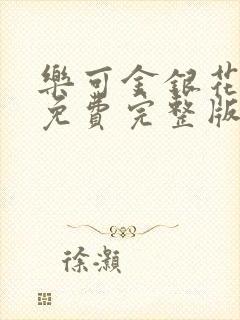 樂可金銀花
免費完整版
徐灝